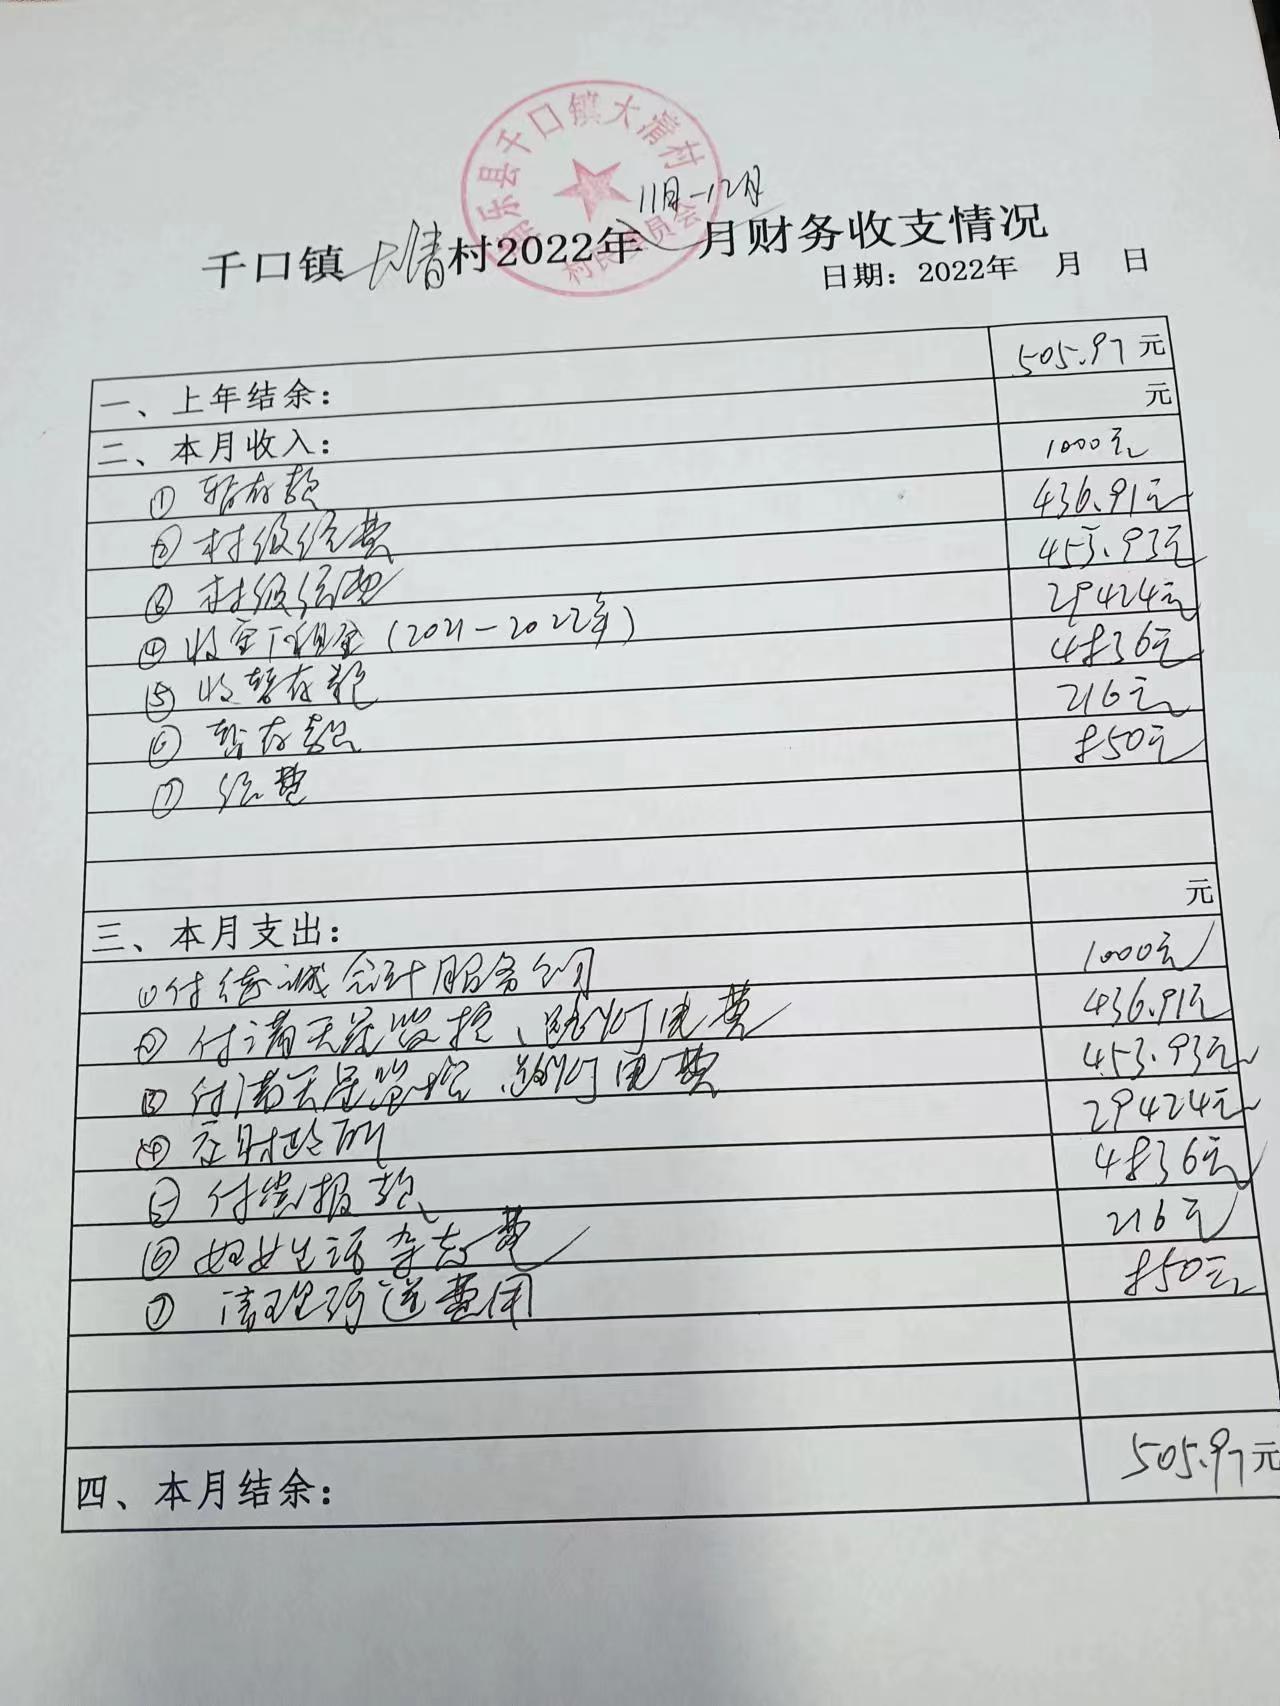 乐县千口镇大清村
村民委员会
11月-12月
千口镇大清村2022年 月财务收支情况
日期：2022年 月 日
一、上年结余： 505.97元
二、本月收入： 元
① 暂存款 1000元
② 村级经费 436.91元
③ 村级经费 453.93元
④ 收 租金（2021-2022年） 29424元
⑤ 收暂存款 4836元
⑥ 暂存款 216元
⑦ 经费 850元
三、本月支出： 元
①付 诚会计服务公司 1000元
② 付满天星监控、路灯电费 436.91元
③ 付满天星监控、路灯电费 453.93元
④ 交财政所 29424元
⑤ 付党报款 4836元
⑥ 妇女生活杂志费 216元
⑦ 清理河道费用 850元
四、本月结余： 505.97元